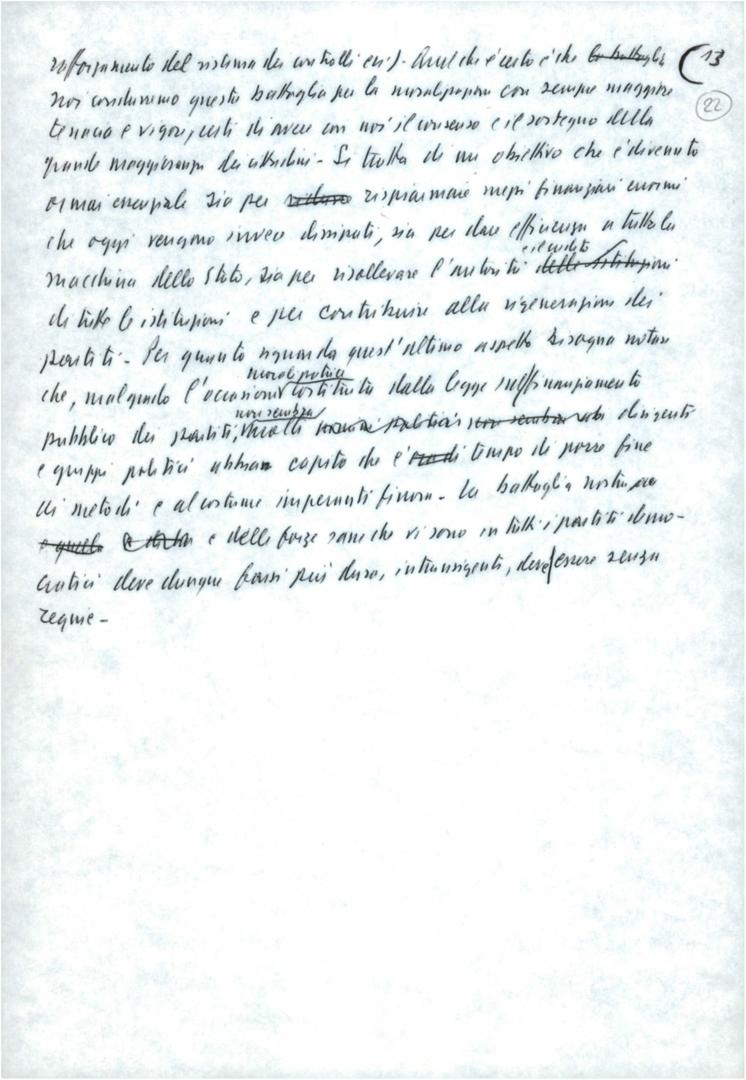 13
22
rafforzamento del sistema dei controlli ecc.). Quel che è certo è che la battaglia
noi condurremo questa battaglia per la moralizzazione con sempre maggiore
tenacia e vigore, certi di avere con noi il consenso e il sostegno della
grande maggioranza dei cittadini - Si tratta di un obiettivo che è divenuto
ormai essenziale sia per ridurre risparmiare mezzi finanziari enormi
che oggi vengono invece dissipati, sia per dare efficienza a tutta la
e il credito
macchina dello Stato, sia per risollevare l'autorità delle istituzioni
di tutte le istituzioni e per contribuire alla rigenerazione dei
partiti - Per quanto riguarda quest'ultimo aspetto bisogna notare
moral-politica
che, malgrado l'occasione costituita dalla legge sul finanziamento
non sembra
pubblico dei partiti, che molti uomini politici non sembra che dirigenti
e gruppi politici abbian capito che è tempo di porre fine
ai metodi e al costume imperanti finora - La battaglia nostra
e quella e delle forze sane che vi sono in tutti i partiti demo-
cratici deve dunque farsi più dura, intransigente, deve essere senza
requie -